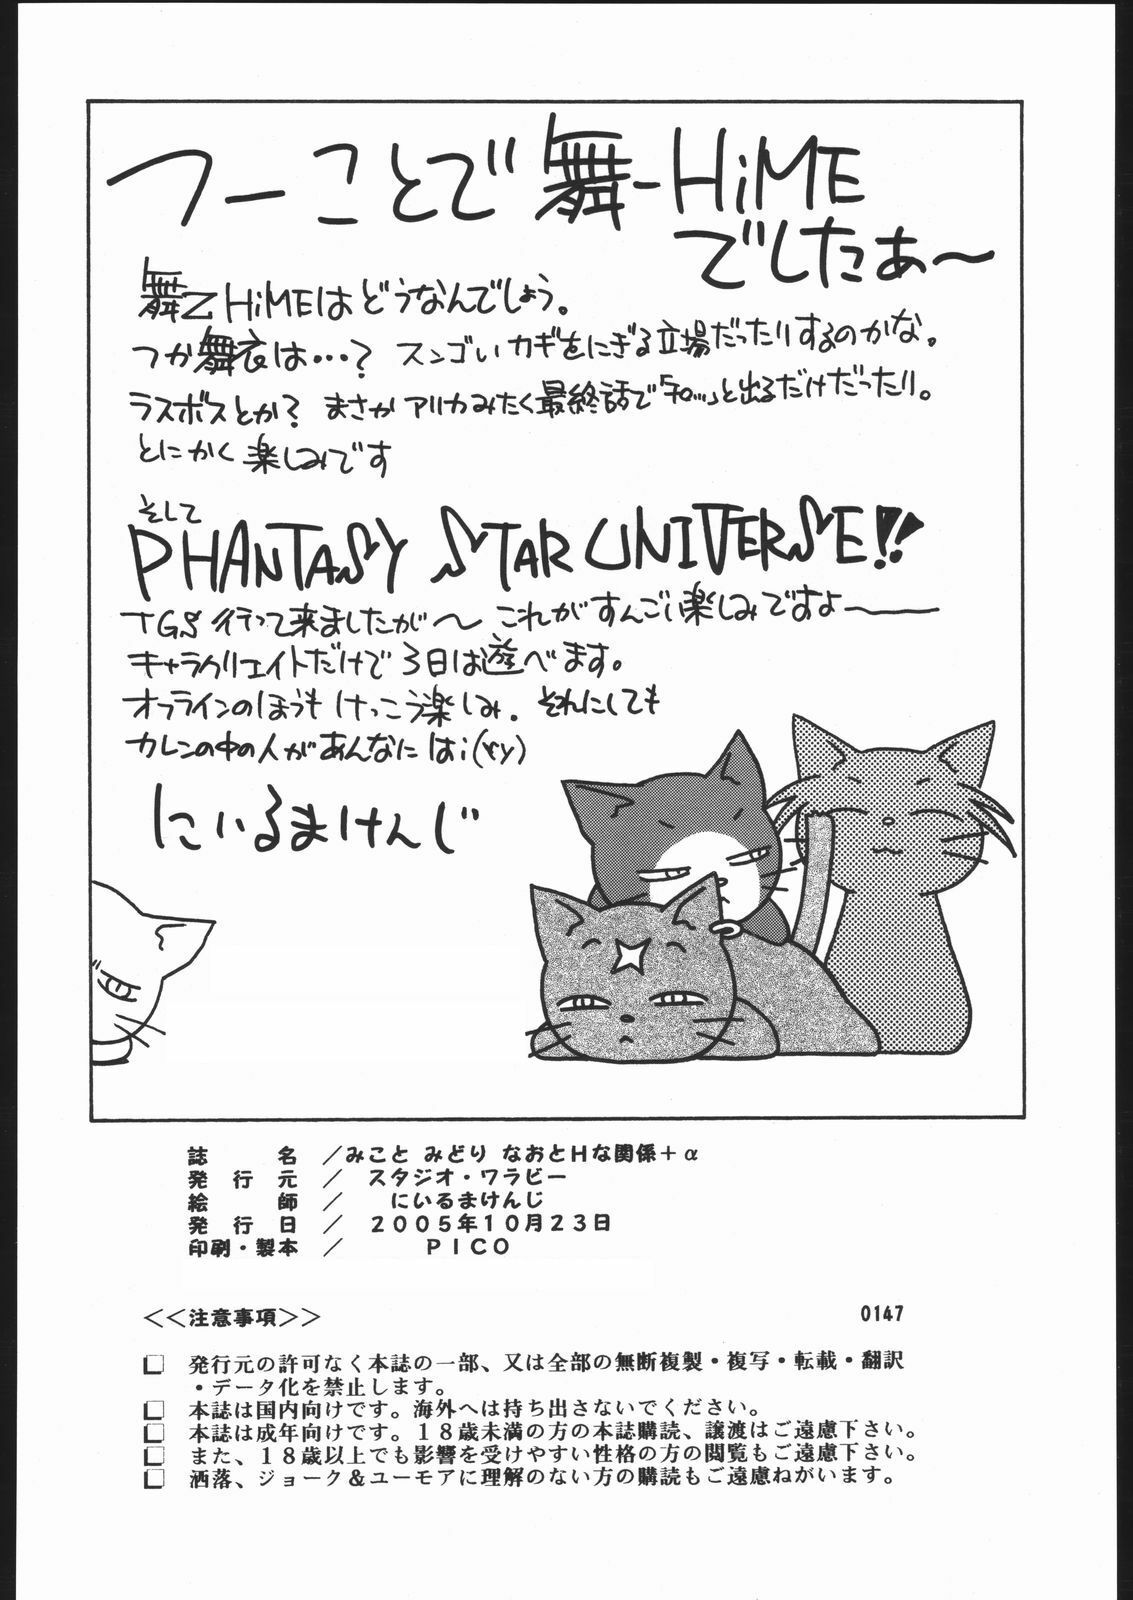 つーことで舞-HiME
でしたぁ～
舞乙HiMEはどうなんでしょう。
つか舞衣は…? スンゴいカギをにぎる立場だったりするのかな。
ラスボスとか? まさかアリカみたく最終話で「　」と出るだけだったり。
とにかく楽しみです
そして
PHANTASY STAR UNIVERSE!!
TGS行って来ましたが～これがすんごい楽しみですよ――
キャラクリエイトだけで3日は遊べます。
オフラインのほうもけっこう楽しみ. それにしても
カレンの中の人があんなにはi(ry)
にいるまけんじ
誌　名　／みこと みどり なおとHな関係＋α
発　行　元　／　スタジオ・ワラビー
絵　師　／　にいるまけんじ
発　行　日　／　２００５年１０月２３日
印刷・製本　／　ＰＩＣＯ
＜＜注意事項＞＞　0147
□　発行元の許可なく本誌の一部、又は全部の無断複製・複写・転載・翻訳
・データ化を禁止します。
□　本誌は国内向けです。海外へは持ち出さないでください。
□　本誌は成年向けです。１８歳未満の方の本誌購読、譲渡はご遠慮下さい。
□　また、１８歳以上でも影響を受けやすい性格の方の閲覧もご遠慮下さい。
□　洒落、ジョーク＆ユーモアに理解のない方の購読もご遠慮ねがいます。